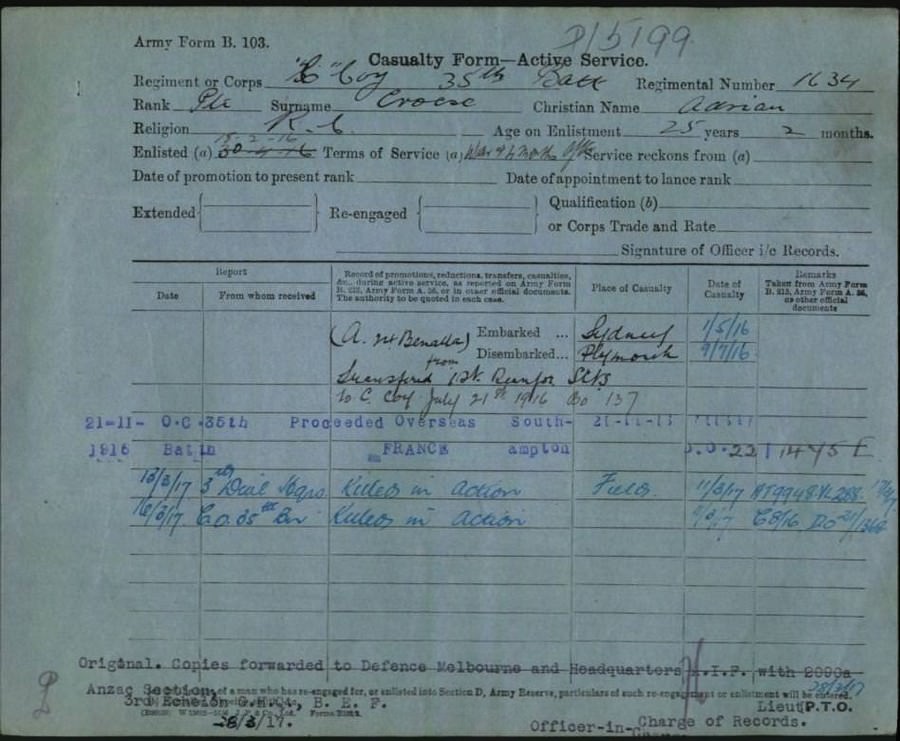 D/5199
Army Form B. 103.
Casualty Form—Active Service.
Regiment or Corps "C" Coy 35th Batt Regimental Number 1634
Rank Pte Surname Croese Christian Name Adrian
Religion R.C. Age on Enlistment 25 years 2 months.
Enlisted (a) Terms of Service (a) Service reckons from (a)
Date of promotion to present rank Date of appointment to lance rank
Extended Re-engaged Qualification (b)
or Corps Trade and Rate
Signature of Officer i/c Records.
Report
Date From whom received
Record of promotions, reductions, transfers, casualties,
&c., during active service, as reported on Army Form
B. 213, Army Form A. 36, or in other official documents.
The authority to be quoted in each case.
Place of Casualty
Date of
Casualty
Remarks
Taken from Army Form
B. 213, Army Form A. 36,
or other official
documents
(A. 24 Benalla) Embarked ... Sydney 1/5/16
Disembarked... Plymouth 9/7/16
from
1st
to C. Coy July 21st 1916 137
21-11- O.C. 35th Proceeded Overseas South-
1916 Batln FRANCE ampton
13/3/17 3rd Divl Hqrs Killed in action Field 11/3/17
C.O. 35th Bn Killed in action
Original. Copies forwarded to Defence Melbourne and Headquarters A.I.F. with 2090a
Anzac Section, of a man who has re-engaged for, or enlisted into Section D, Army Reserve, particulars of such re-engagement or enlistment will be entered.
3rd Echelon G.H.Q., B. E. F. Lieut P.T.O.
/3/17. Officer-in- Charge of Records.